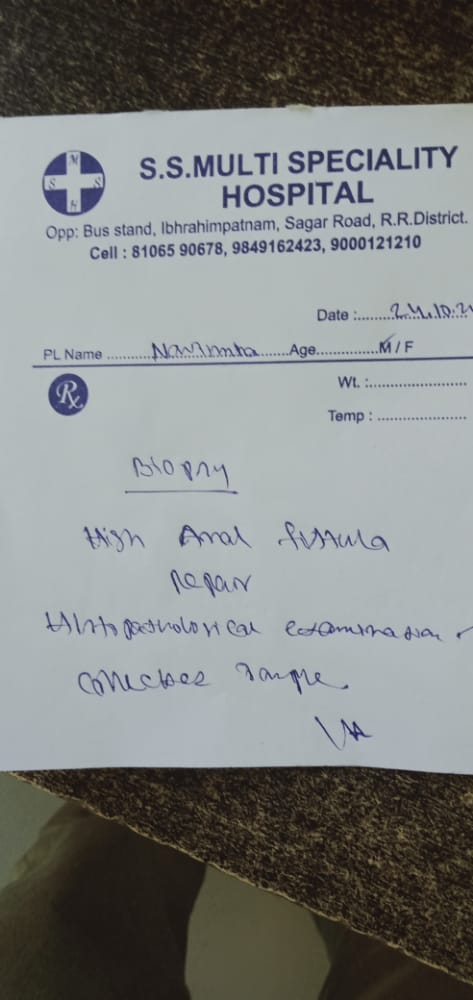 M
S S
H
S.S.MULTI SPECIALITY
HOSPITAL
Opp: Bus stand, Ibhrahimpatnam, Sagar Road, R.R.District.
Cell : 81065 90678, 9849162423, 9000121210
Date :........24.10.2
PL Name ...............Age...............M / F
Rx
Wt. :.......................
Temp : .....................
Biopsy
High Anal fistula
repair
Histopathological examination
collected sample